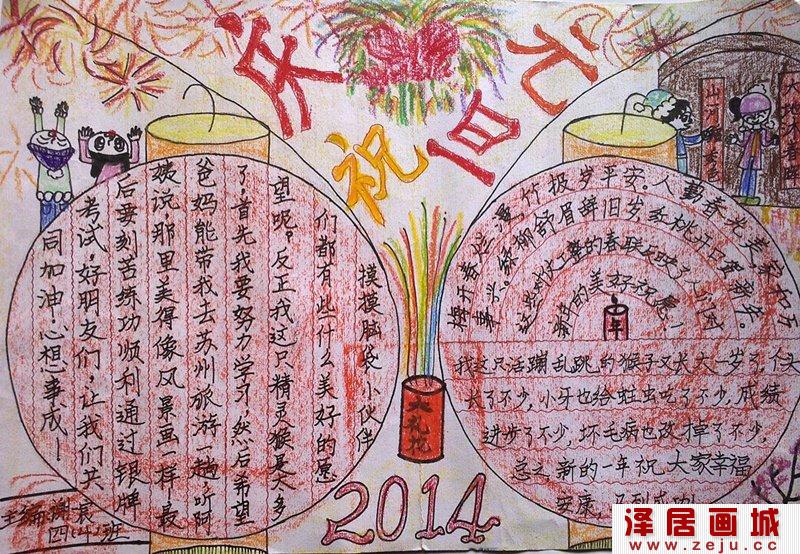 庆祝元旦
摸摸脑袋小伙伴
们都有些什么美好的愿
望呢。反正我这只精灵猴是大多
了，首先我要努力学习，然后希望
爸妈能带我去苏州旅游一趟，听阿
姨说，那里美得像风景画一样，最
后要刻苦练功顺利通过银牌
考试，好朋友们，让我们共
同加油心想事成！
竹报岁平安。人勤春光美家
舒眉辞旧岁
的春联反映了人们对
新年的美好祝愿！
年
我这只活蹦乱跳的猴子又长大一岁了，个头
长了不少，小牙也给蛀虫吃了不少，成绩
进步了不少，坏毛病也改掉了不少，
总之新的一年祝大家幸福
安康，马到成功！
大礼花
2014
主编：谢晨
四（4）班
泽居画城
www.zeju.cc